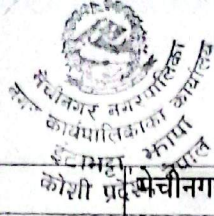 मेचीनगर नगरपालिका
नगर कार्यपालिकाको कार्यालय
इटाभट्टा झापा
कोशी प्रदेश नेपाल
मेचीनग